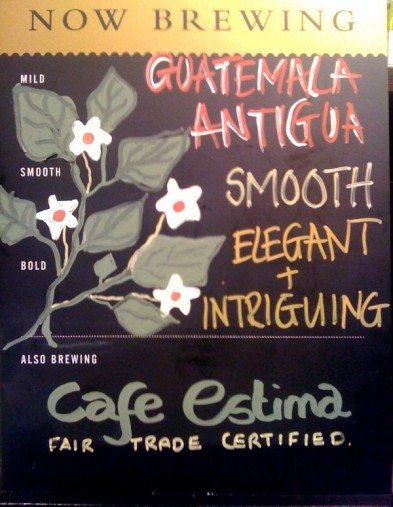 NOW BREWING
MILD
GUATEMALA
ANTIGUA
SMOOTH
SMOOTH
ELEGANT
+
INTRIGUING
BOLD
ALSO BREWING
Cafe Estima
FAIR TRADE CERTIFIED.